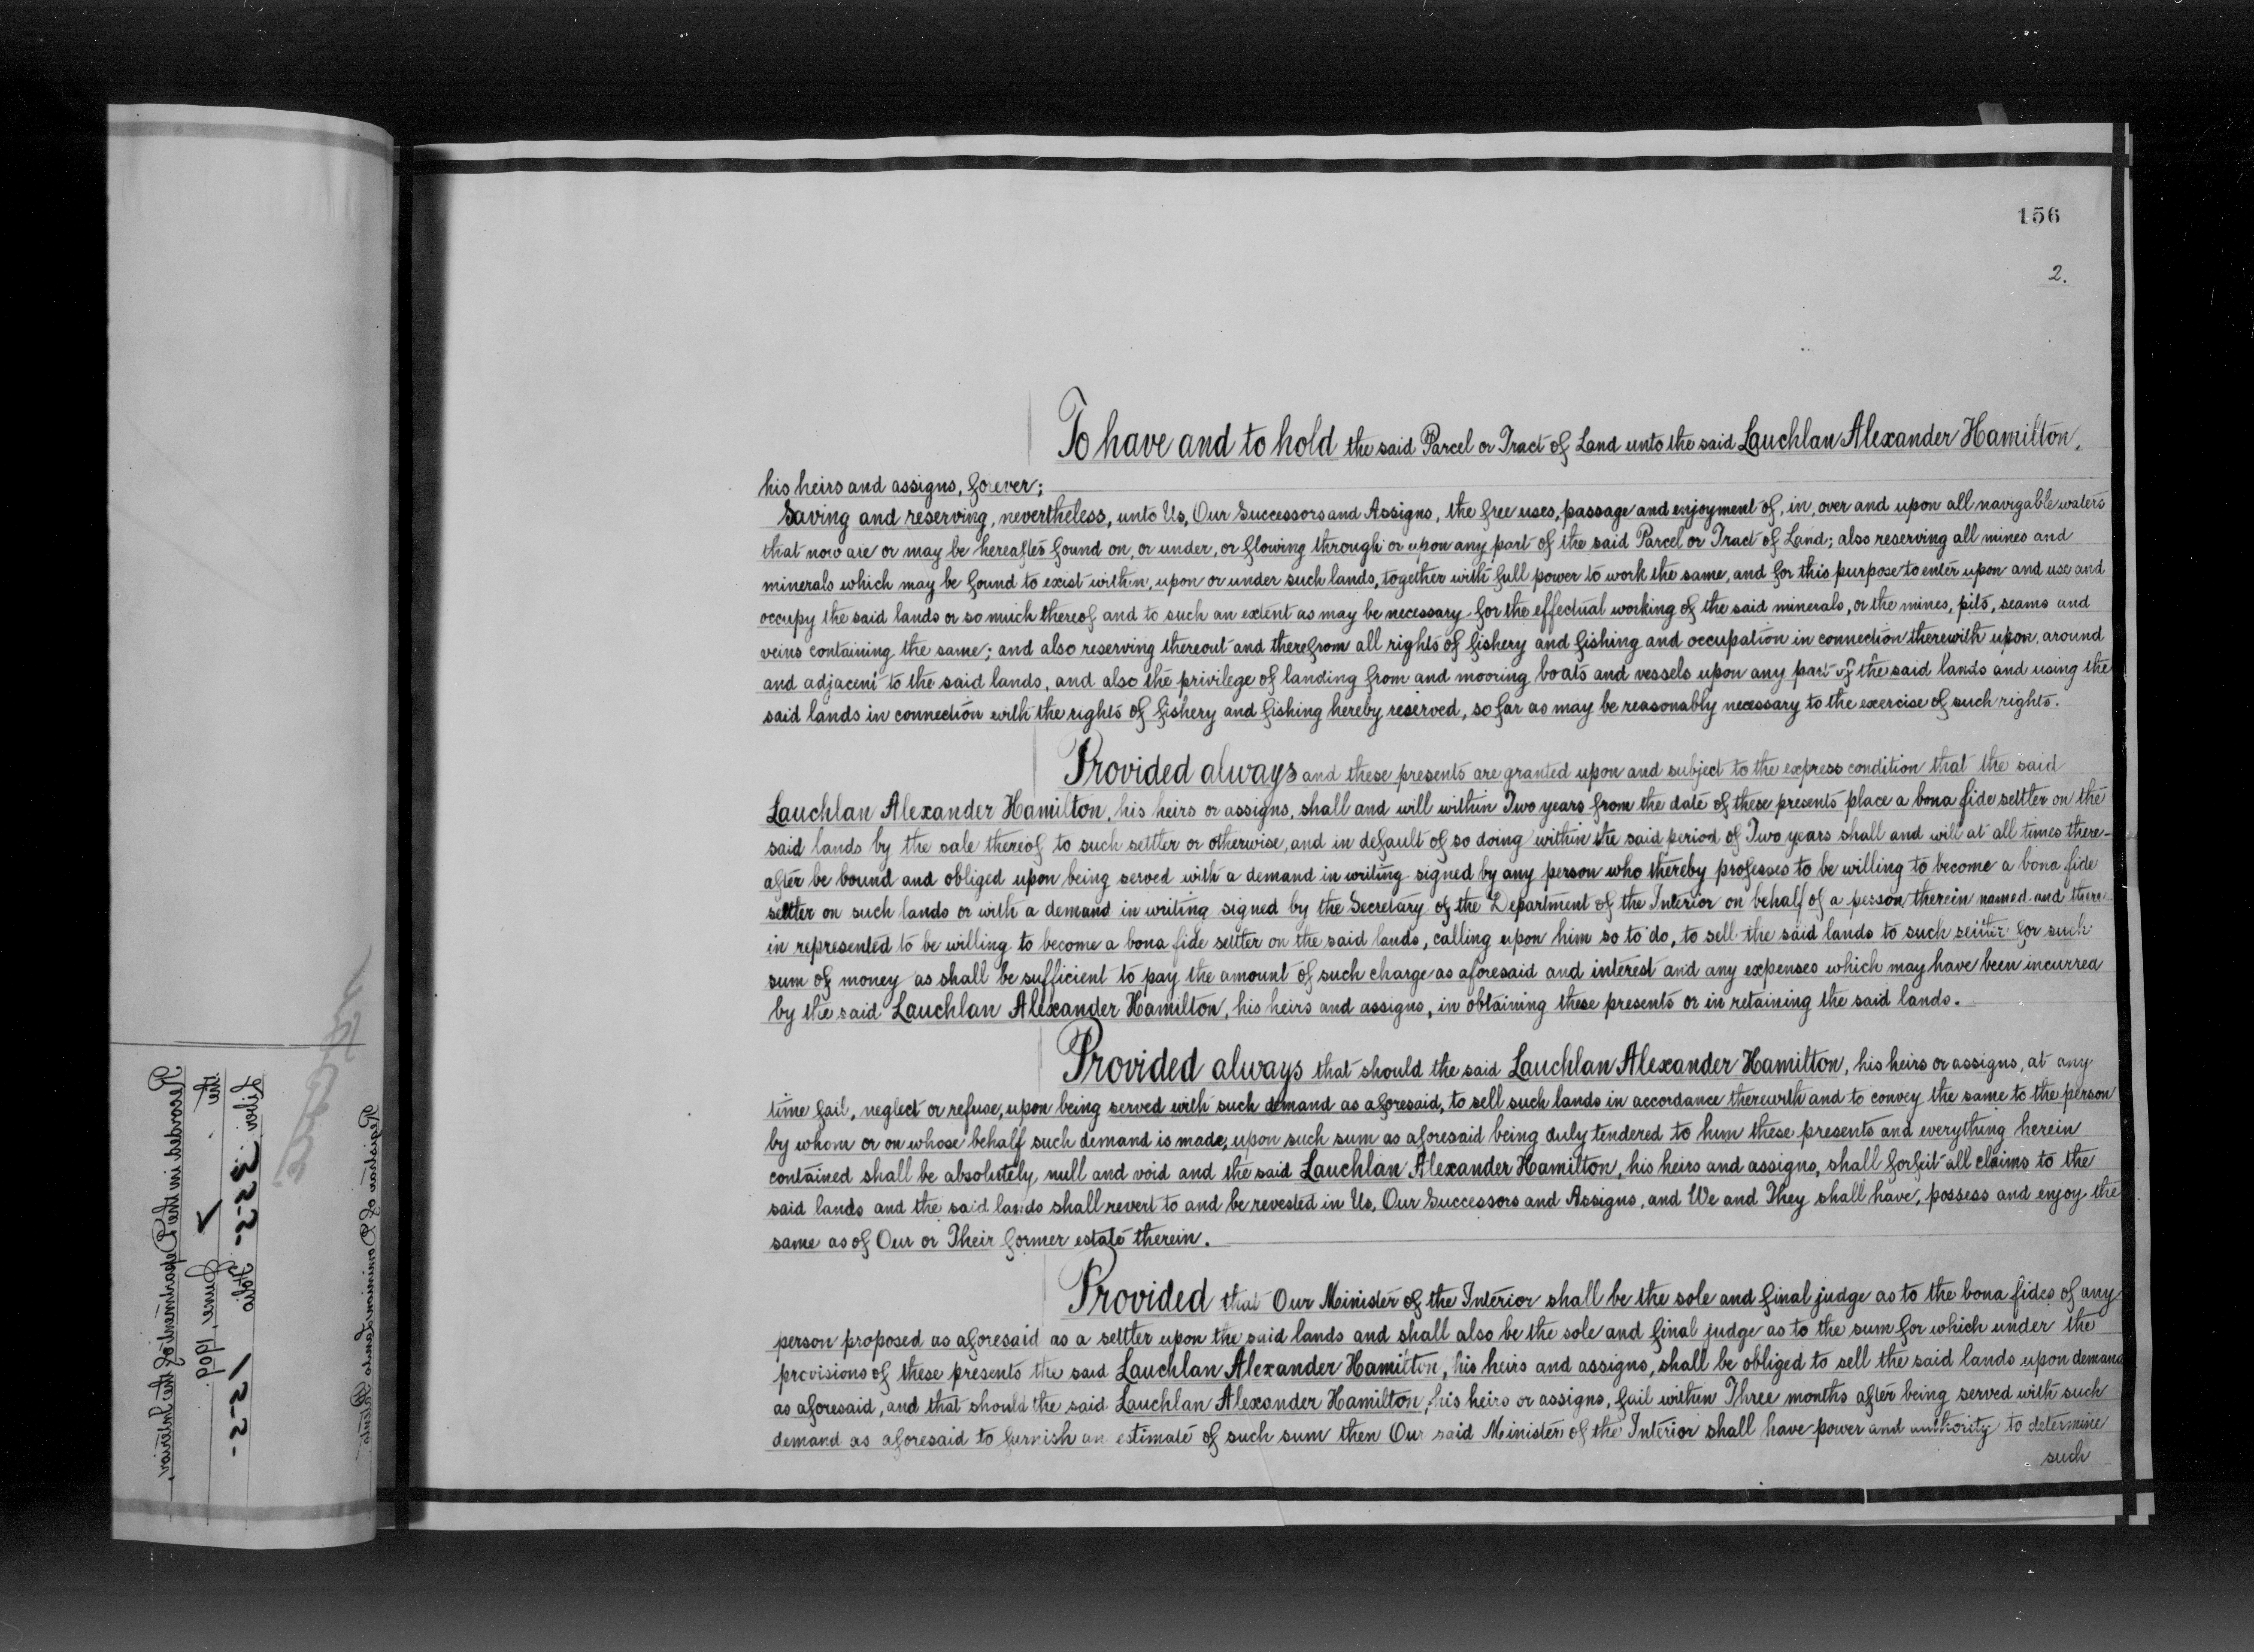 156
2.
To have and to hold the said Parcel or Tract of Land unto the said Lauchlan Alexander Hamilton,
his heirs and assigns, forever;
Saving and reserving, nevertheless, unto Us, Our Successors and Assigns, the free uses, passage and enjoyment of, in, over and upon all navigable waters
that now are or may be hereafter found on, or under, or flowing through or upon any part of the said Parcel or Tract of Land; also reserving all mines and
minerals which may be found to exist within, upon or under such lands, together with full power to work the same, and for this purpose to enter upon and use and
occupy the said lands or so much thereof and to such an extent as may be necessary for the effectual working of the said minerals, or the mines, pits, seams and
veins containing the same; and also reserving thereout and therefrom all rights of fishery and fishing and occupation in connection therewith upon, around
and adjacent to the said lands, and also the privilege of landing from and mooring boats and vessels upon any part of the said lands and using the
said lands in connection with the rights of fishery and fishing hereby reserved, so far as may be reasonably necessary to the exercise of such rights.
Provided always and these presents are granted upon and subject to the express condition that the said
Lauchlan Alexander Hamilton, his heirs or assigns, shall and will within Two years from the date of these presents place a bona fide settler on the
said lands by the sale thereof to such settler or otherwise, and in default of so doing within the said period of Two years shall and will at all times there-
after be bound and obliged upon being served with a demand in writing signed by any person who thereby professes to be willing to become a bona fide
settler on such lands or with a demand in writing signed by the Secretary of the Department of the Interior on behalf of a person therein named and there-
in represented to be willing to become a bona fide settler on the said lands, calling upon him so to do, to sell the said lands to such settler for such
sum of money as shall be sufficient to pay the amount of such charge as aforesaid and interest and any expenses which may have been incurred
by the said Lauchlan Alexander Hamilton, his heirs and assigns, in obtaining these presents or in retaining the said lands.
Provided always that should the said Lauchlan Alexander Hamilton, his heirs or assigns, at any
time fail, neglect or refuse, upon being served with such demand as aforesaid, to sell such lands in accordance therewith and to convey the same to the person
by whom or on whose behalf such demand is made, upon such sum as aforesaid being duly tendered to him these presents and everything herein
contained shall be absolutely null and void and the said Lauchlan Alexander Hamilton, his heirs and assigns, shall forfeit all claims to the
said lands and the said lands shall revert to and be revested in Us, Our Successors and Assigns, and We and They shall have, possess and enjoy the
same as of Our or Their former estate therein.
Provided that Our Minister of the Interior shall be the sole and final judge as to the bona fides of any
person proposed as aforesaid as a settler upon the said lands and shall also be the sole and final judge as to the sum for which under the
provisions of these presents the said Lauchlan Alexander Hamilton, his heirs and assigns, shall be obliged to sell the said lands upon demand
as aforesaid, and that should the said Lauchlan Alexander Hamilton, his heirs or assigns, fail within Three months after being served with such
demand as aforesaid to furnish an estimate of such sum then Our said Minister of the Interior shall have power and authority to determine
such
Recorded in the Department of the Interior,
the June, 1909.
Liber folio
Registrar of Dominion Lands Patents.